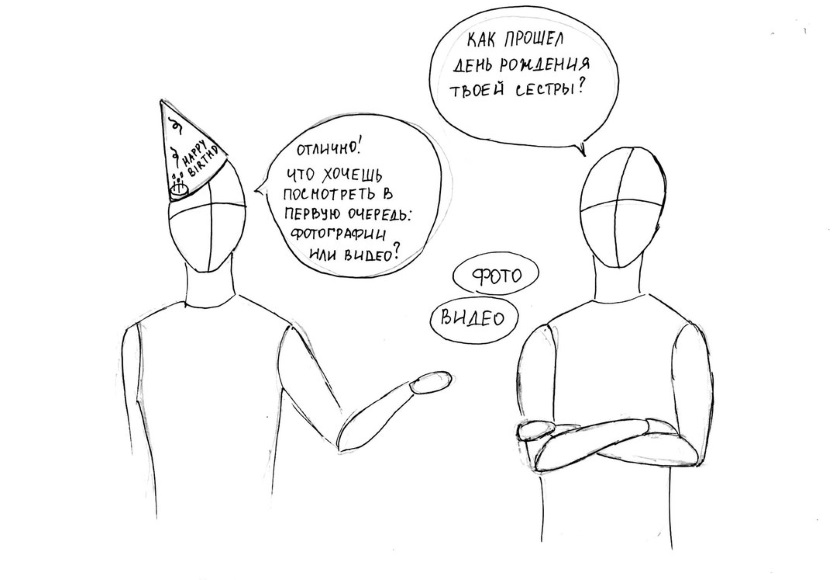 КАК ПРОШЕЛ
ДЕНЬ РОЖДЕНИЯ
ТВОЕЙ СЕСТРЫ?
HAPPY
BIRTHD
ОТЛИЧНО!
ЧТО ХОЧЕШЬ
ПОСМОТРЕТЬ В
ПЕРВУЮ ОЧЕРЕДЬ:
ФОТОГРАФИИ
ИЛИ ВИДЕО?
ФОТО
ВИДЕО